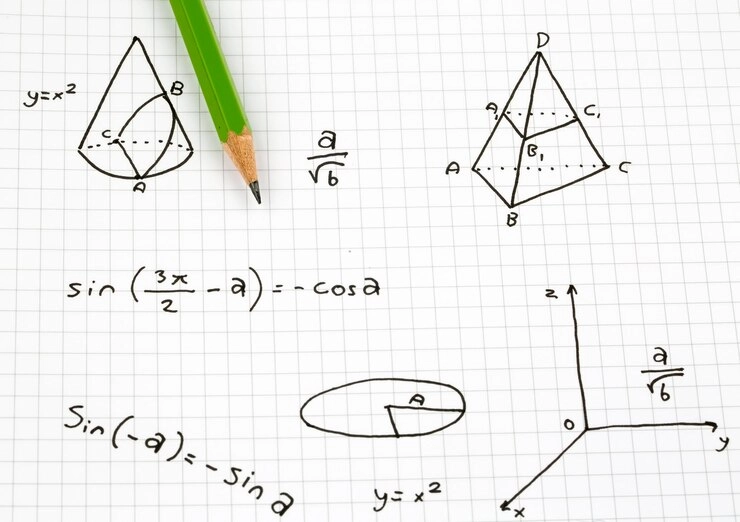 y=x²
B
C
A
a/√b
D
A₁
C₁
B₁
A
C
B
sin (3π/2 - a) = - cosa
z
a/√b
A
o
y
Sin(-a)=-sina
y=x²
x